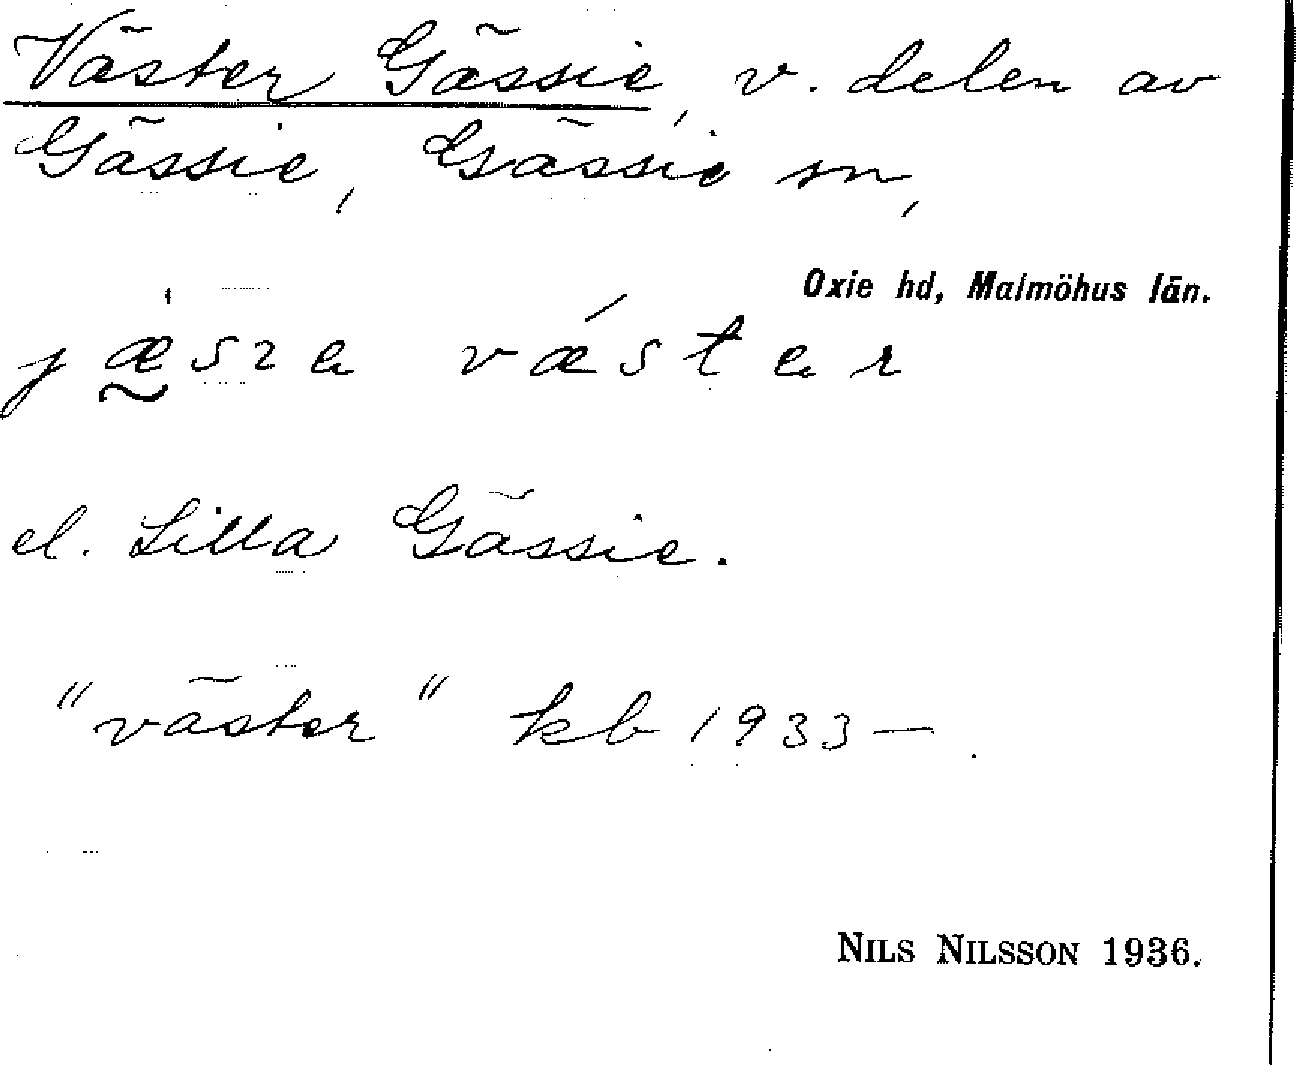 Väster Gässie, v. delen av
Gässie, Gässie sn,
Oxie hd, Malmöhus län.
väster
el. Lilla Gässie.
"väster" kb 1933—.
NILS NILSSON 1936.